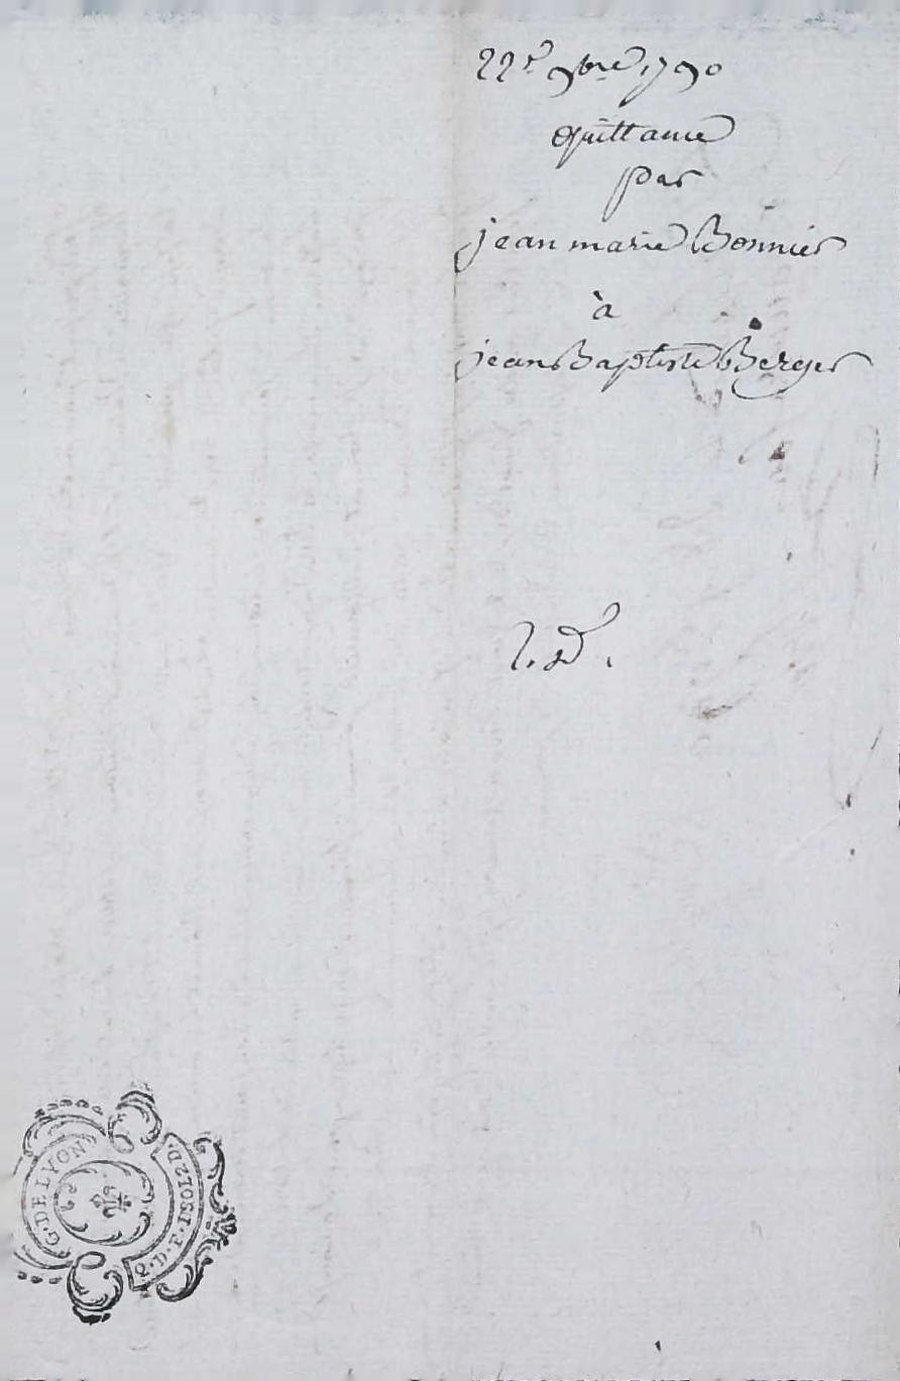 22e 9bre 1790
quittance
par
jean marie Bonnier
à
jean Baptiste Berger
G. DE LYON